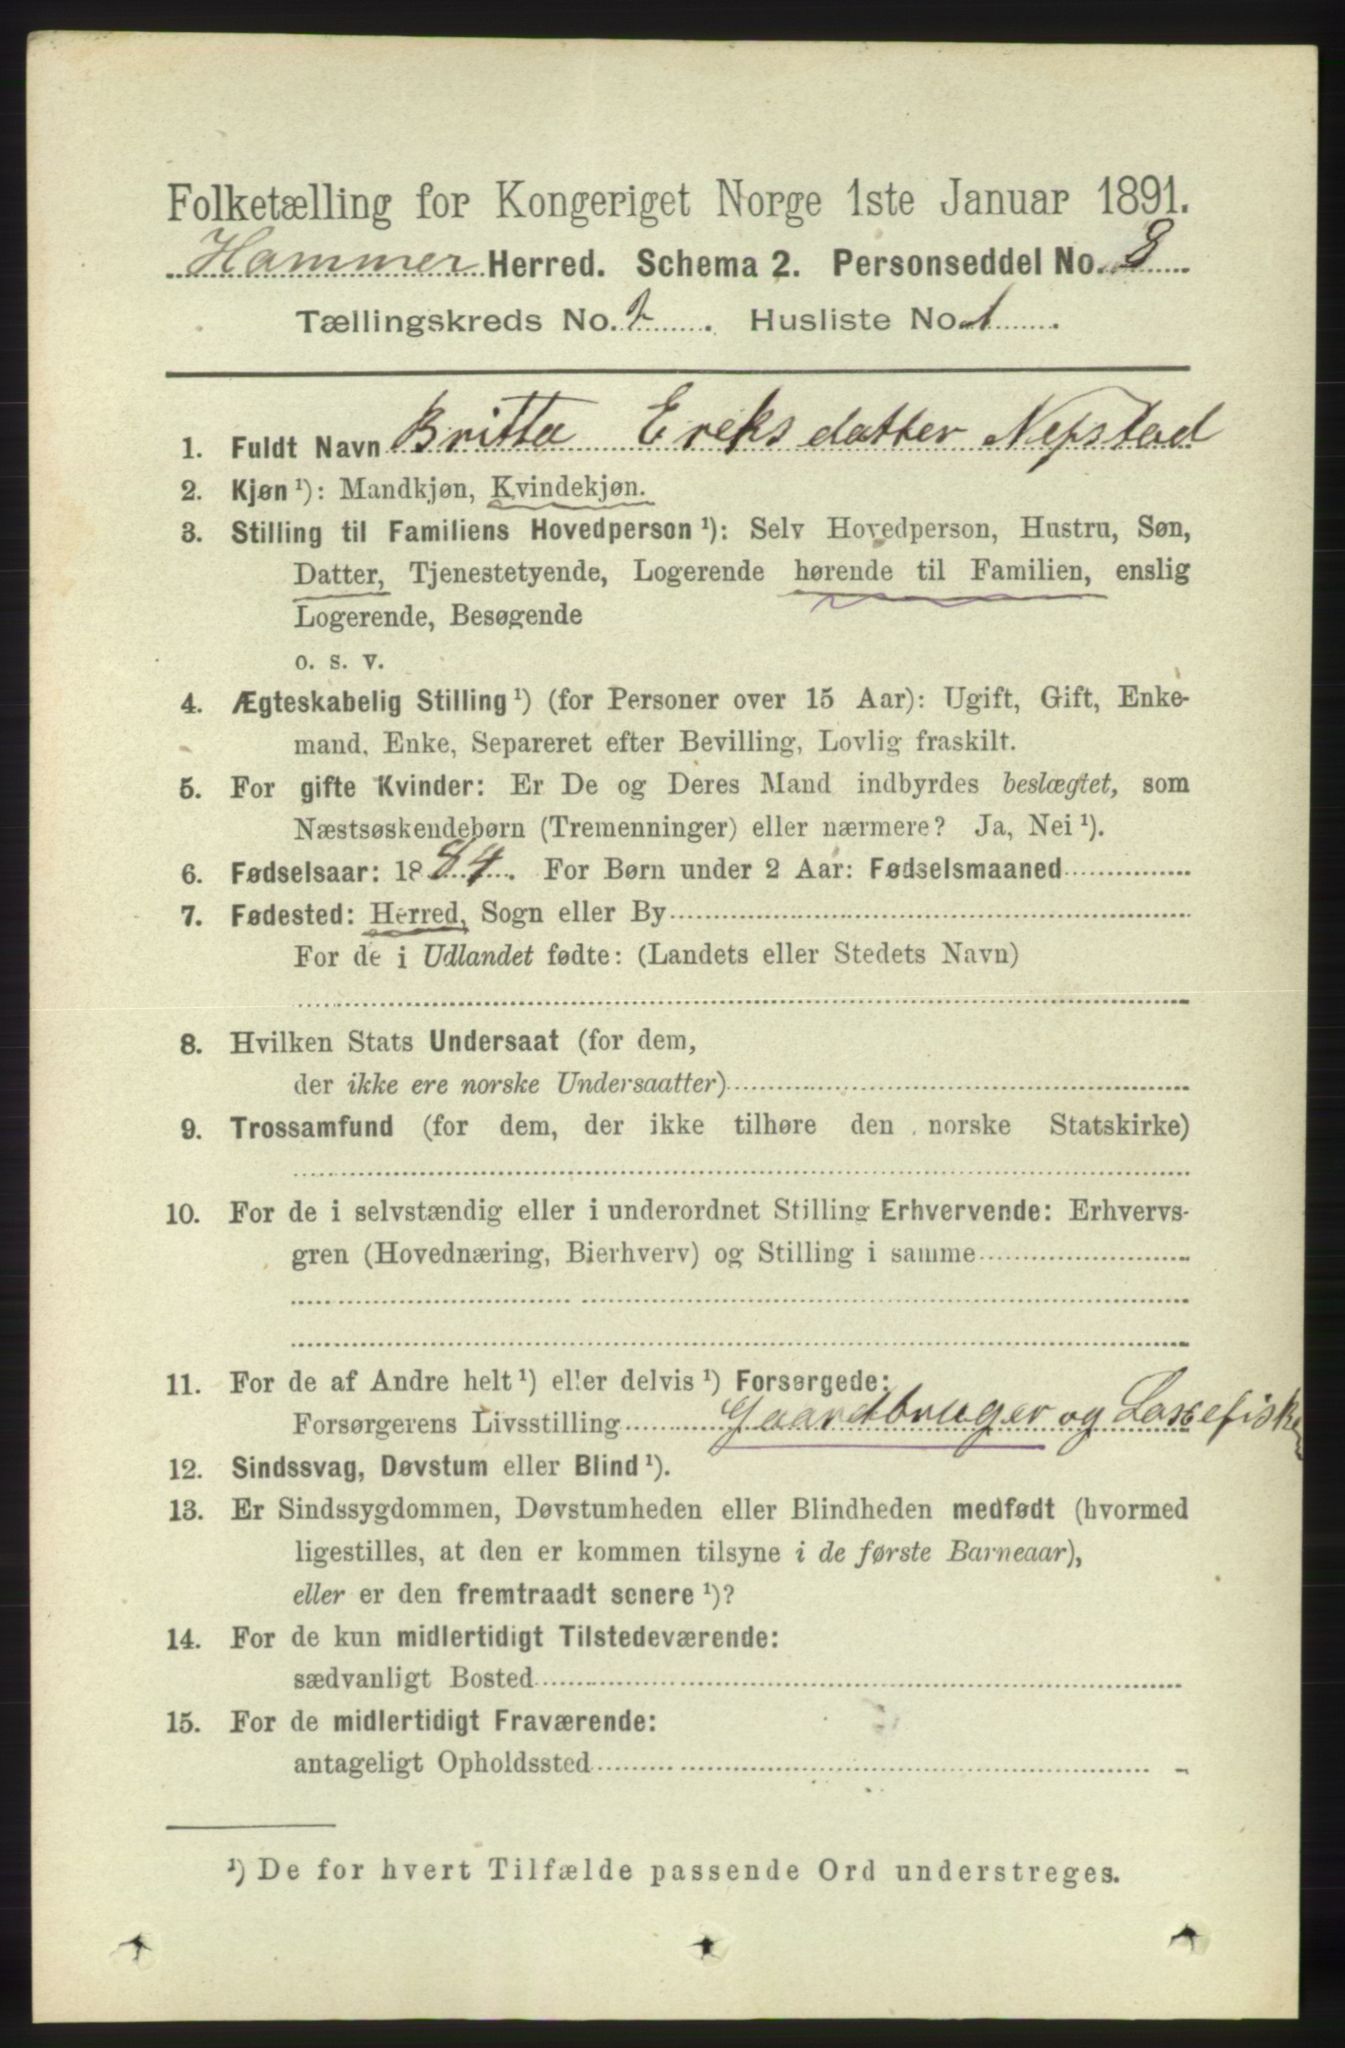 Folketælling for Kongeriget Norge 1ste Januar 1891.
Hammer Herred. Schema 2. Personseddel No. 8
Tællingskreds No. 2. Husliste No. 1.
1. Fuldt Navn Britta Ereksdatter Nepstad
2. Kjøn ¹): Mandkjøn, Kvindekjøn.
3. Stilling til Familiens Hovedperson ¹): Selv Hovedperson, Hustru, Søn,
Datter, Tjenestetyende, Logerende hørende til Familien, enslig
Logerende, Besøgende
o. s. v.
4. Ægteskabelig Stilling ¹) (for Personer over 15 Aar): Ugift, Gift, Enke-
mand, Enke, Separeret efter Bevilling, Lovlig fraskilt.
5. For gifte Kvinder: Er De og Deres Mand indbyrdes beslægtet, som
Næstsøskendebørn (Tremenninger) eller nærmere? Ja, Nei ¹).
6. Fødselsaar: 1884. For Børn under 2 Aar: Fødselsmaaned
7. Fødested: Herred, Sogn eller By
For de i Udlandet fødte: (Landets eller Stedets Navn)
8. Hvilken Stats Undersaat (for dem,
der ikke ere norske Undersaatter)
9. Trossamfund (for dem, der ikke tilhøre den norske Statskirke)
10. For de i selvstændig eller i underordnet Stilling Erhvervende: Erhvervs-
gren (Hovednæring, Bierhverv) og Stilling i samme
11. For de af Andre helt ¹) eller delvis ¹) Forsørgede:
Forsørgerens Livsstilling Gaardbruger og
12. Sindssvag, Døvstum eller Blind ¹).
13. Er Sindssygdommen, Døvstumheden eller Blindheden medfødt (hvormed
ligestilles, at den er kommen tilsyne i de første Barneaar),
eller er den fremtraadt senere ¹)?
14. For de kun midlertidigt Tilstedeværende:
sædvanligt Bosted
15. For de midlertidigt Fraværende:
antageligt Opholdssted
¹) De for hvert Tilfælde passende Ord understreges.